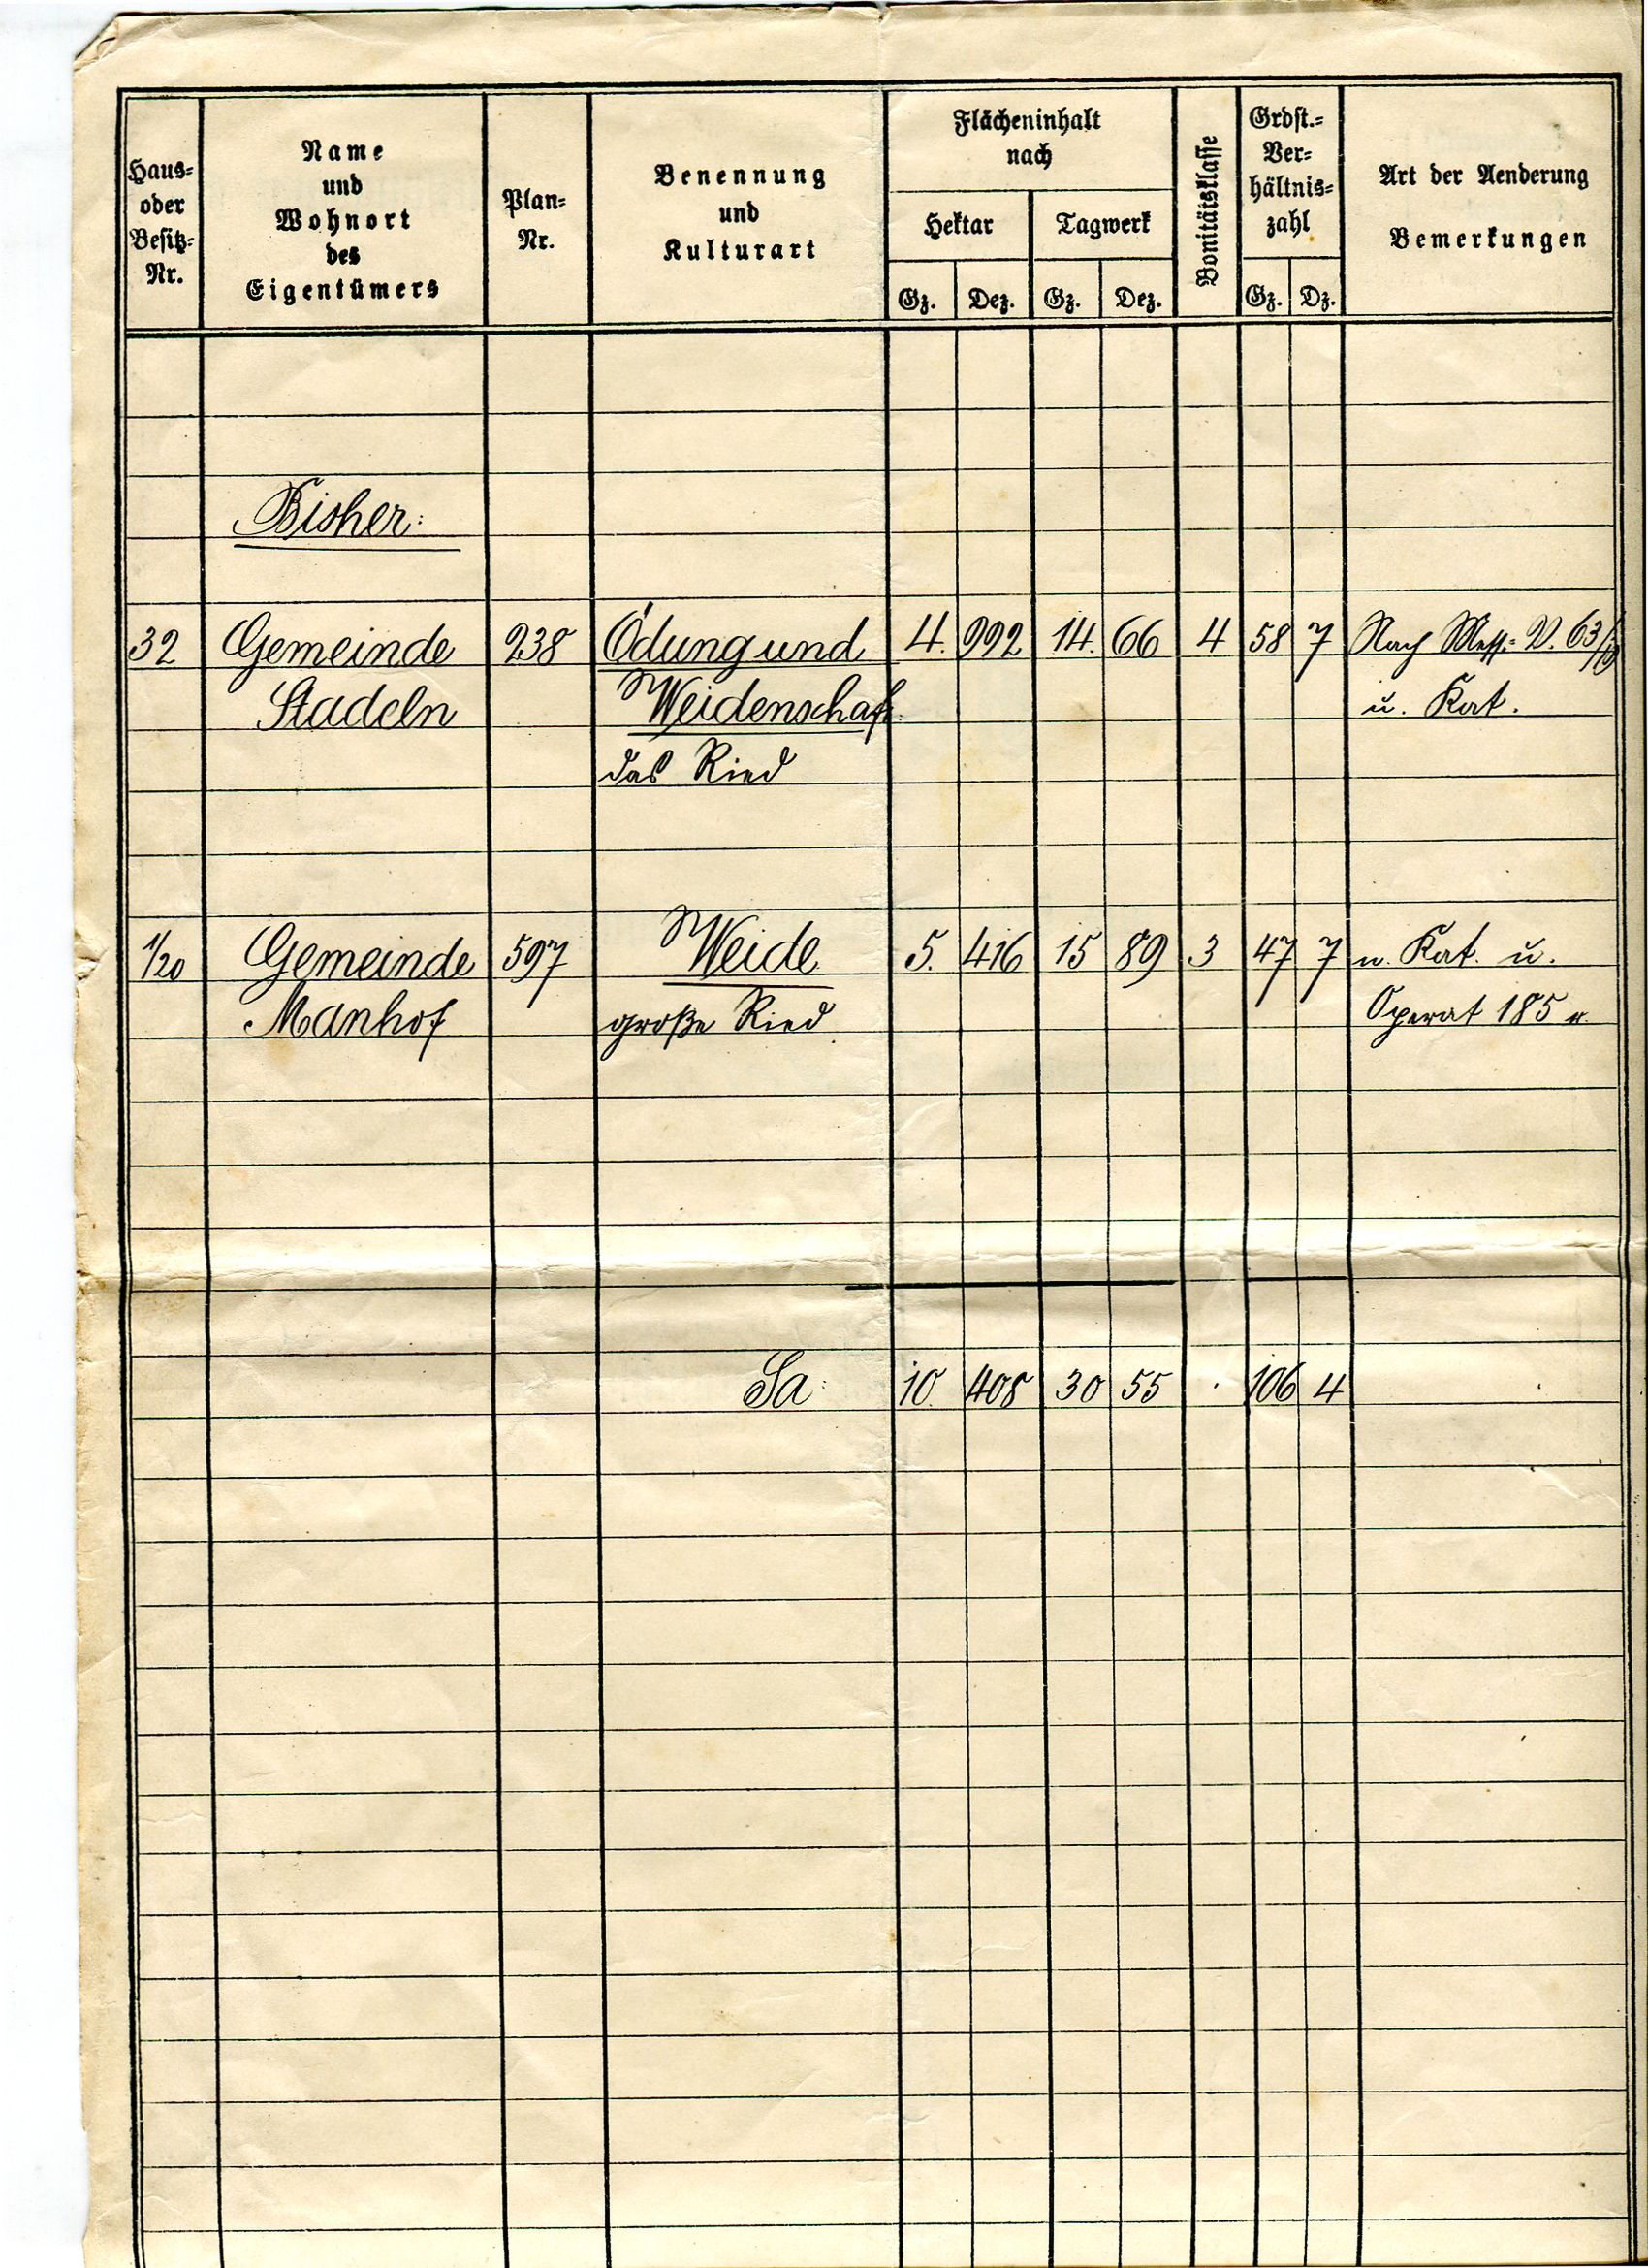 Haus-
oder
Besitz-
Nr.
Name
und
Wohnort
des
Eigentümers
Plan-
Nr.
Benennung
und
Kulturart
Flächeninhalt
nach
Hektar
Tagwerk
Gz. Dez. Gz. Dez.
Bonitätsklasse
Grdst.-
Ver-
hältnis-
zahl
Gz. Dz.
Art der Aenderung
Bemerkungen
Bisher:
32 Gemeinde 238 Ödung und 4. 992 14. 66 4 58 7 Nach Mess.-V. 63/
Stadeln Weidenschaft u. Kat.
das Ried
1/20 Gemeinde 597 Weide 5. 416 15 89 3 47 7 n. Kat. u.
Manhof große Ried Operat 185
Sa: 10. 408 30 55 . 106 4